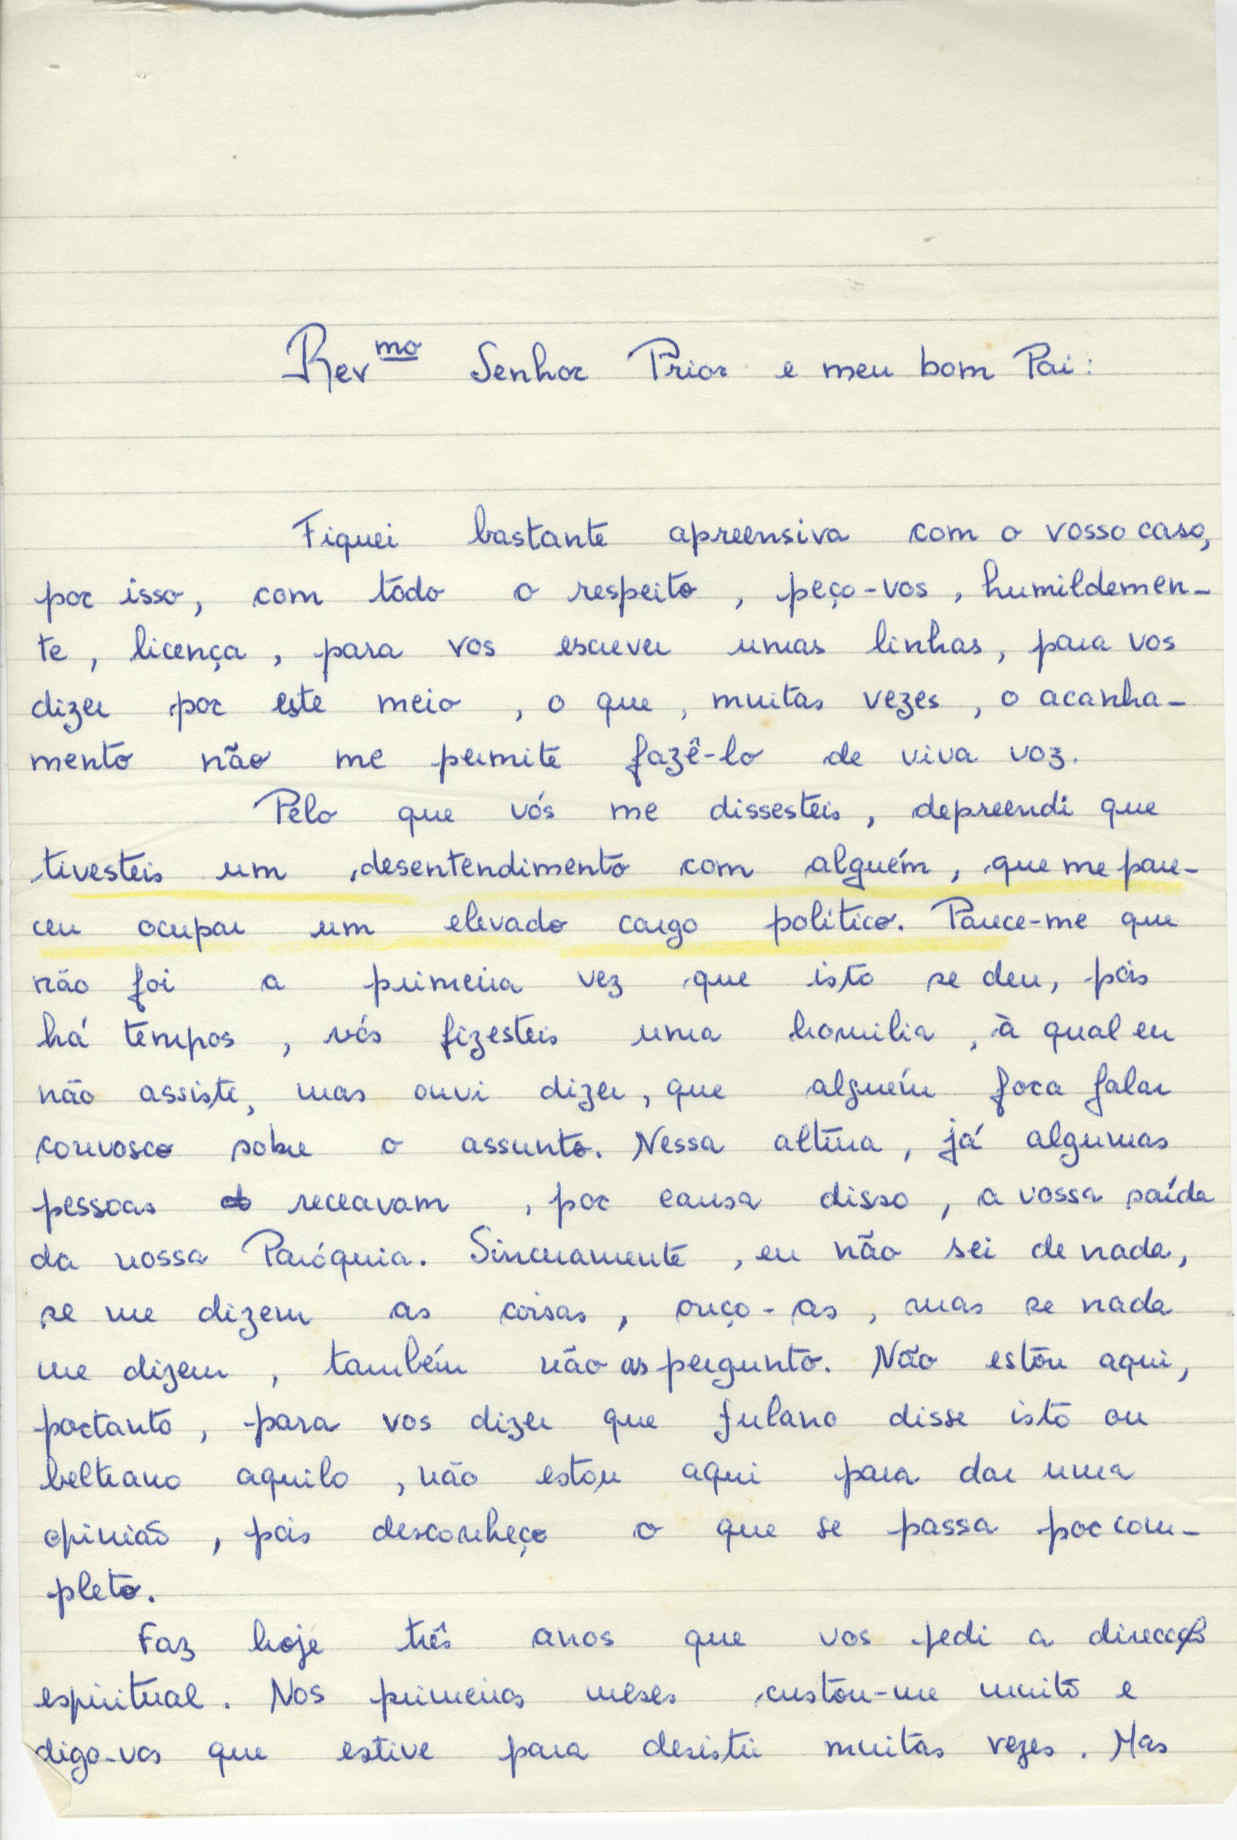 Rev mo Senhor Prior e meu bom Pai:
Fiquei bastante apreensiva com o vosso caso,
por isso, com tôdo o respeito, peço-vos, humildemen-
te, licença, para vos escrever umas linhas, para vos
dizer por este meio, o que, muitas vezes, o acanha-
mento não me permite fazê-lo de viva voz.
Pelo que vós me dissesteis, depreendi que
tivesteis um desentendimento com alguém, que me pare-
ceu ocupar um elevado cargo político. Parece-me que
não foi a primeira vez que isto se deu, pois
há tempos, vós fizesteis uma homilia, à qual eu
não assisti, mas ouvi dizer, que alguém fora falar
convosco sobre o assunto. Nessa altura, já algumas
pessoas receavam, por causa disso, a vossa saída
da nossa Paróquia. Sinceramente, eu não sei de nada,
se me dizem as coisas, ouço-as, mas se nada
me dizem, também não as pergunto. Não estou aqui,
portanto, para vos dizer que fulano disse isto ou
beltrano aquilo, não estou aqui para dar uma
opinião, pois desconheço o que se passa por com-
pleto.
Faz hoje três anos que vos pedi a direcção
espiritual. Nos primeiros meses custou-me muito e
digo-vos que estive para desistir muitas vezes. Mas